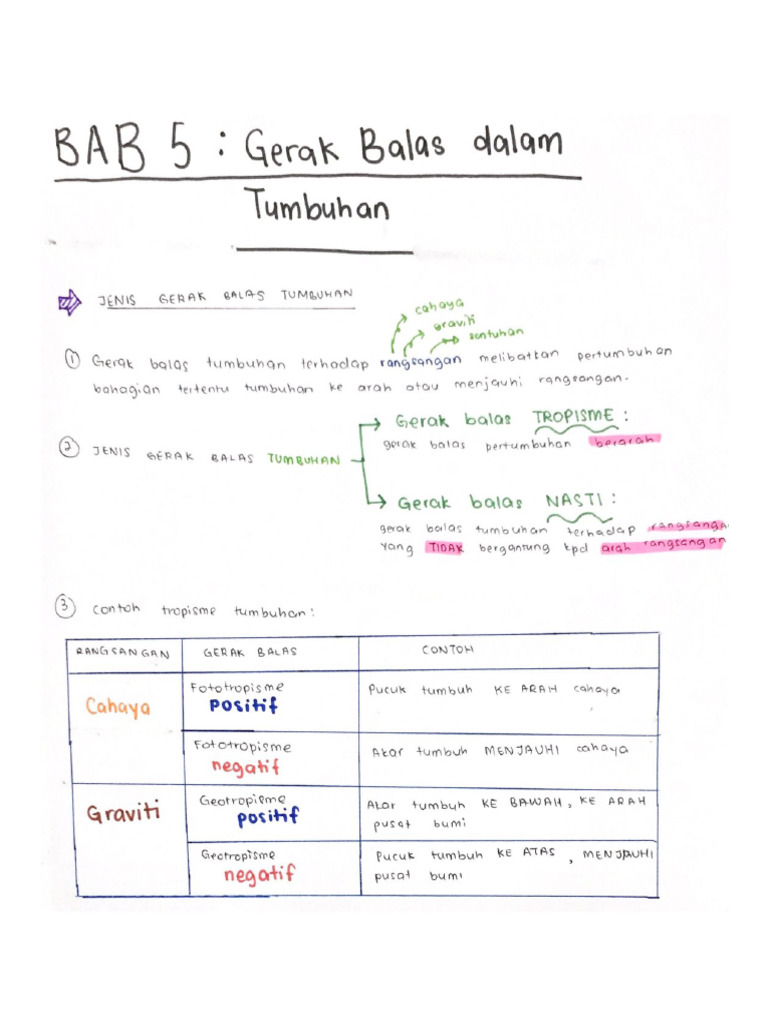 BAB 5 : Gerak Balas dalam
Tumbuhan
JENIS GERAK BALAS TUMBUHAN
cahaya
graviti
sentuhan
① Gerak balas tumbuhan terhadap rangsangan melibatkan pertumbuhan
bahagian tertentu tumbuhan ke arah atau menjauhi rangsangan.
② JENIS GERAK BALAS TUMBUHAN
Gerak balas TROPISME :
gerak balas pertumbuhan berarah
Gerak balas NASTI :
gerak balas tumbuhan terhadap rangsanga
yang TIDAK bergantung kpd arah rangsangan
③ Contoh tropisme tumbuhan :
RANGSANGAN GERAK BALAS CONTOH
Cahaya
Fototropisme
positif
Pucuk tumbuh KE ARAH cahaya
Fototropisme
negatif
Akar tumbuh MENJAUHI cahaya
Graviti
Geotropisme
positif
Akar tumbuh KE BAWAH, KE ARAH
pusat bumi
Geotropisme
negatif
Pucuk tumbuh KE ATAS, MENJAUHI
pusat bumi